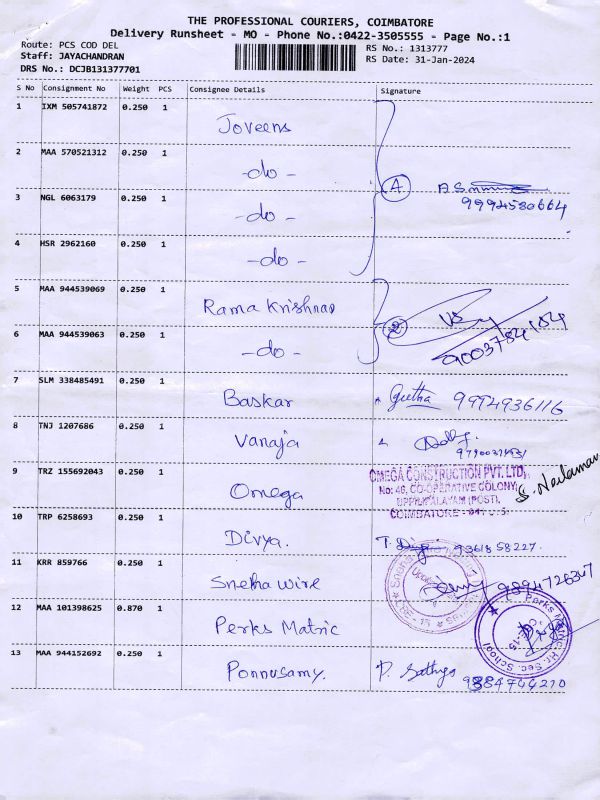 THE PROFESSIONAL COURIERS, COIMBATORE
Delivery Runsheet - MO - Phone No.:0422-3505555 - Page No.:1
Route: PCS COD DEL
RS No.: 1313777
Staff: JAYACHANDRAN
RS Date: 31-Jan-2024
DRS No.: DCJB131377701
S No Consignment No Weight PCS Consignee Details Signature
1 IXM 505741872 0.250 1 Joveens
2 MAA 570521312 0.250 1 -do-
3 NGL 6063179 0.250 1 -do- A 9994580664
4 HSR 2962160 0.250 1 -do-
5 MAA 944539069 0.250 1 Rama Krishnas
6 MAA 944539063 0.250 1 -do- 2 9003784184
7 SLM 338485491 0.250 1 Baskar Geetha 9994936116
8 TNJ 1207686 0.250 1 Vanaja
9 TRZ 155692043 0.250 1 Omega
OMEGA CONSTRUCTION PVT. LTD,
No: 46, CO-OPERATIVE COLONY,
UPPILIPALAYAM (POST),
COIMBATORE - 641 015.
10 TRP 6258693 0.250 1 Divya. 93618 58227.
11 KRR 859766 0.250 1 Sneha Wire 9894726347
12 MAA 101398625 0.870 1 Perks Matric
Perks Matric. Hr. Sec. School
13 MAA 944152692 0.250 1 Ponnusamy. P. Sathya